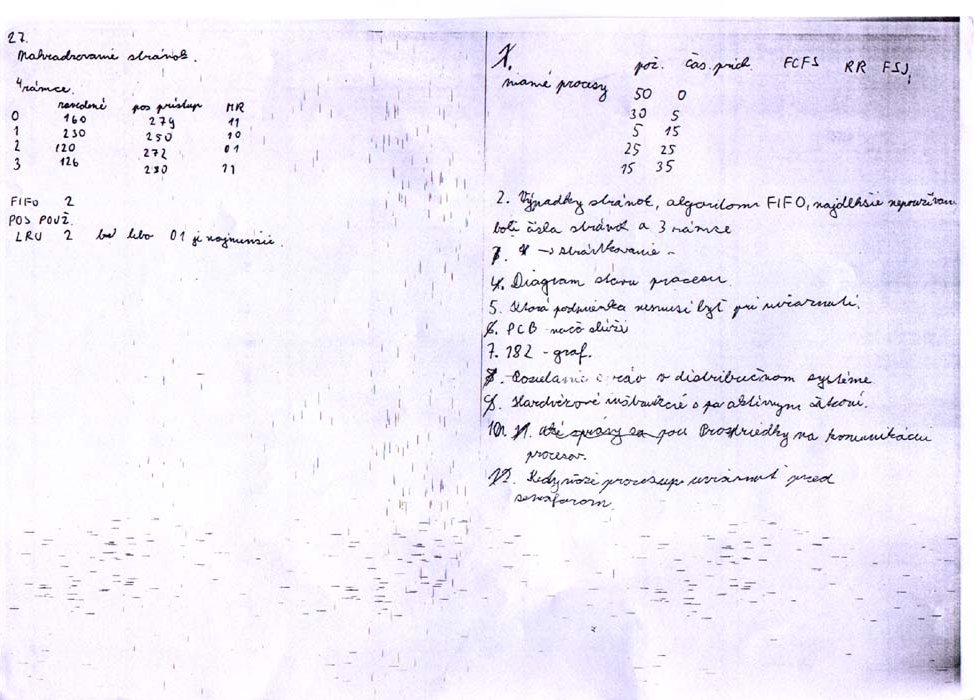 27.
Nahradzovanie stránok.
4 rámce.
zavedené pos prístup MR
0 160 279 11
1 230 250 10
2 120 272 01
3 126 230 11
FIFO 2
POS POUŽ.
LRU 2 lebo 01 je najmenšie.
1.
pož. čas. prích. FCFS RR FSJ,
mamé procesy
50 0
30 5
5 15
25 25
15 35
2. Výpadky stránok, algoritmom FIFO, najdlhšie nepoužívan
boli čísla stránok a 3 rámce
→ stránkovanie -
4. Diagram stavu procesu.
5. Ktorá podmienka nemusí byť pri uviaznutí.
6. PCB načo slúži
7. 182 - graf.
8. Posielanie správ v distribučnom systéme
9. Hardvérové inštrukcie s pa aktívnym čakaní.
10. sú Prostriedky na komunikáciu
procesov.
12. Kedy može proces uviaznuť pred
semaforom.